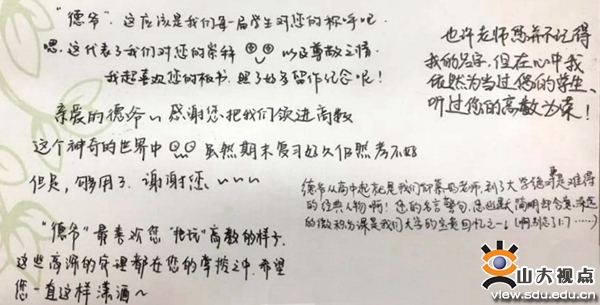 “德爷”. 这应该是我们每一届学生对您的称呼吧.
嗯. 这代表了我们对您的崇拜 以及尊敬之情.
我超喜欢您的板书. 照了好多留作纪念呢!
亲爱的德爷~ 感谢您把我们领进高数
这个神奇的世界中 虽然期末复习好久仍然考不好
但是, 够用了. 谢谢您~~~
“德爷” 最喜欢您 “把玩” 高数的样子.
这些高深的定理都在您的掌控之中. 希望
您一直这样潇洒~
也许老师您并不记得
我的名字, 但在心中我
依然为当过您的学生、
听过您的高数为荣!
德爷从高中起就是我们仰慕的老师, 到了大学德爷是难得
的经典人物啊! 您的名言警句, 您幽默 简明却含意深远
的微积分课是我们大学的宝贵回忆之一! (啊别忘了1.7……)
山大视点
view.sdu.edu.cn